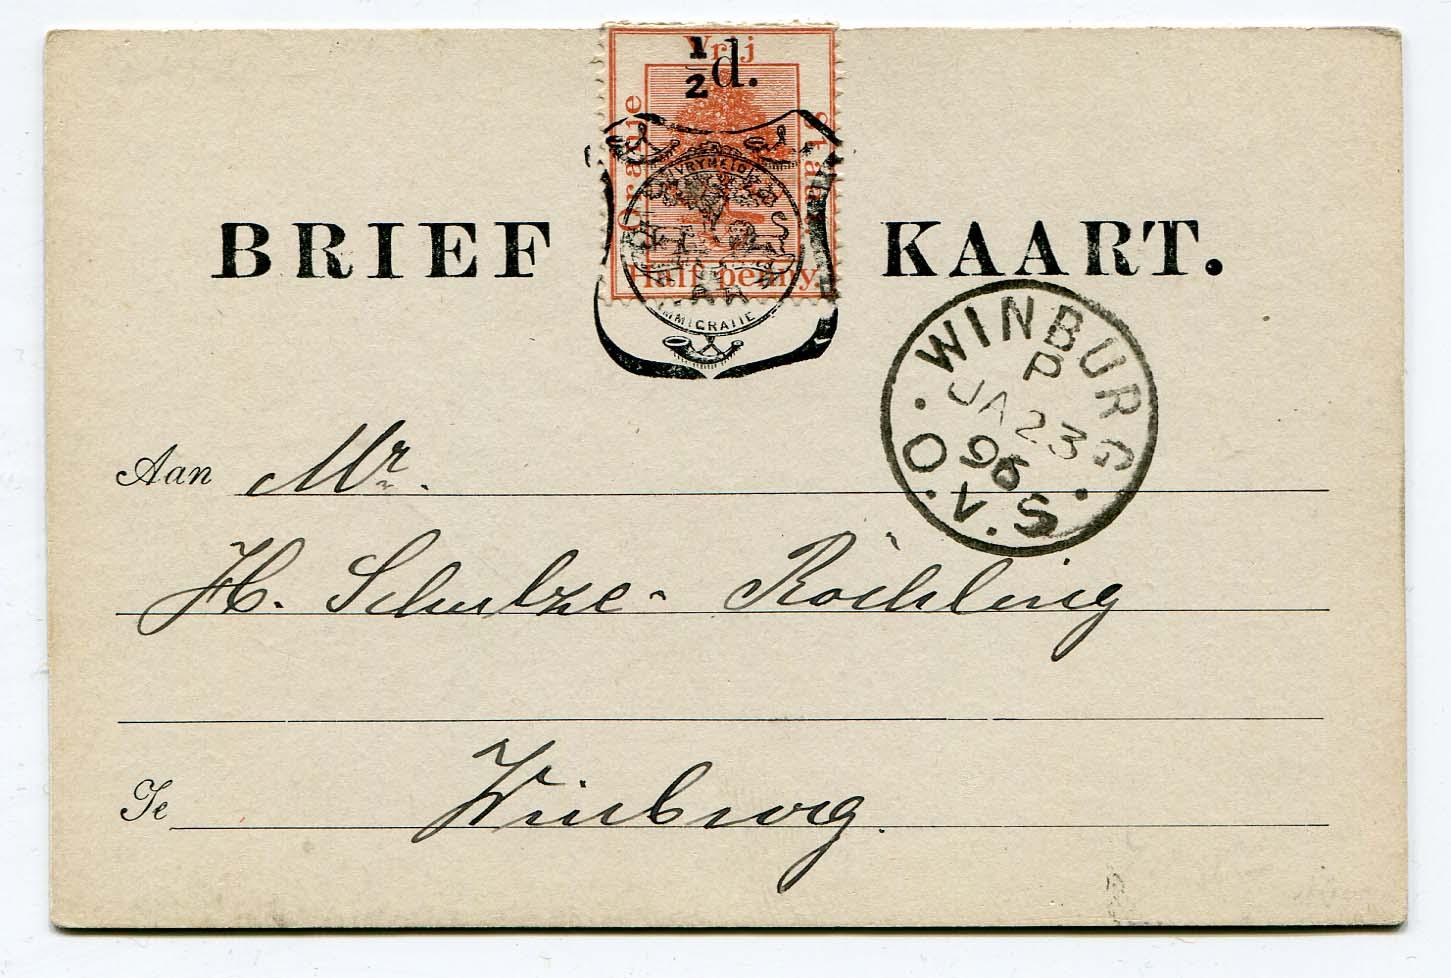 ½d.
Vrij
Oranje
Staat
Half penny.
VRYHEID
IMMIGRATIE
BRIEF KAART.
WINBURG
P
JA 23
96
O.V.S.
Aan Mr.
H. Schulze-Röchling
Te Winburg.